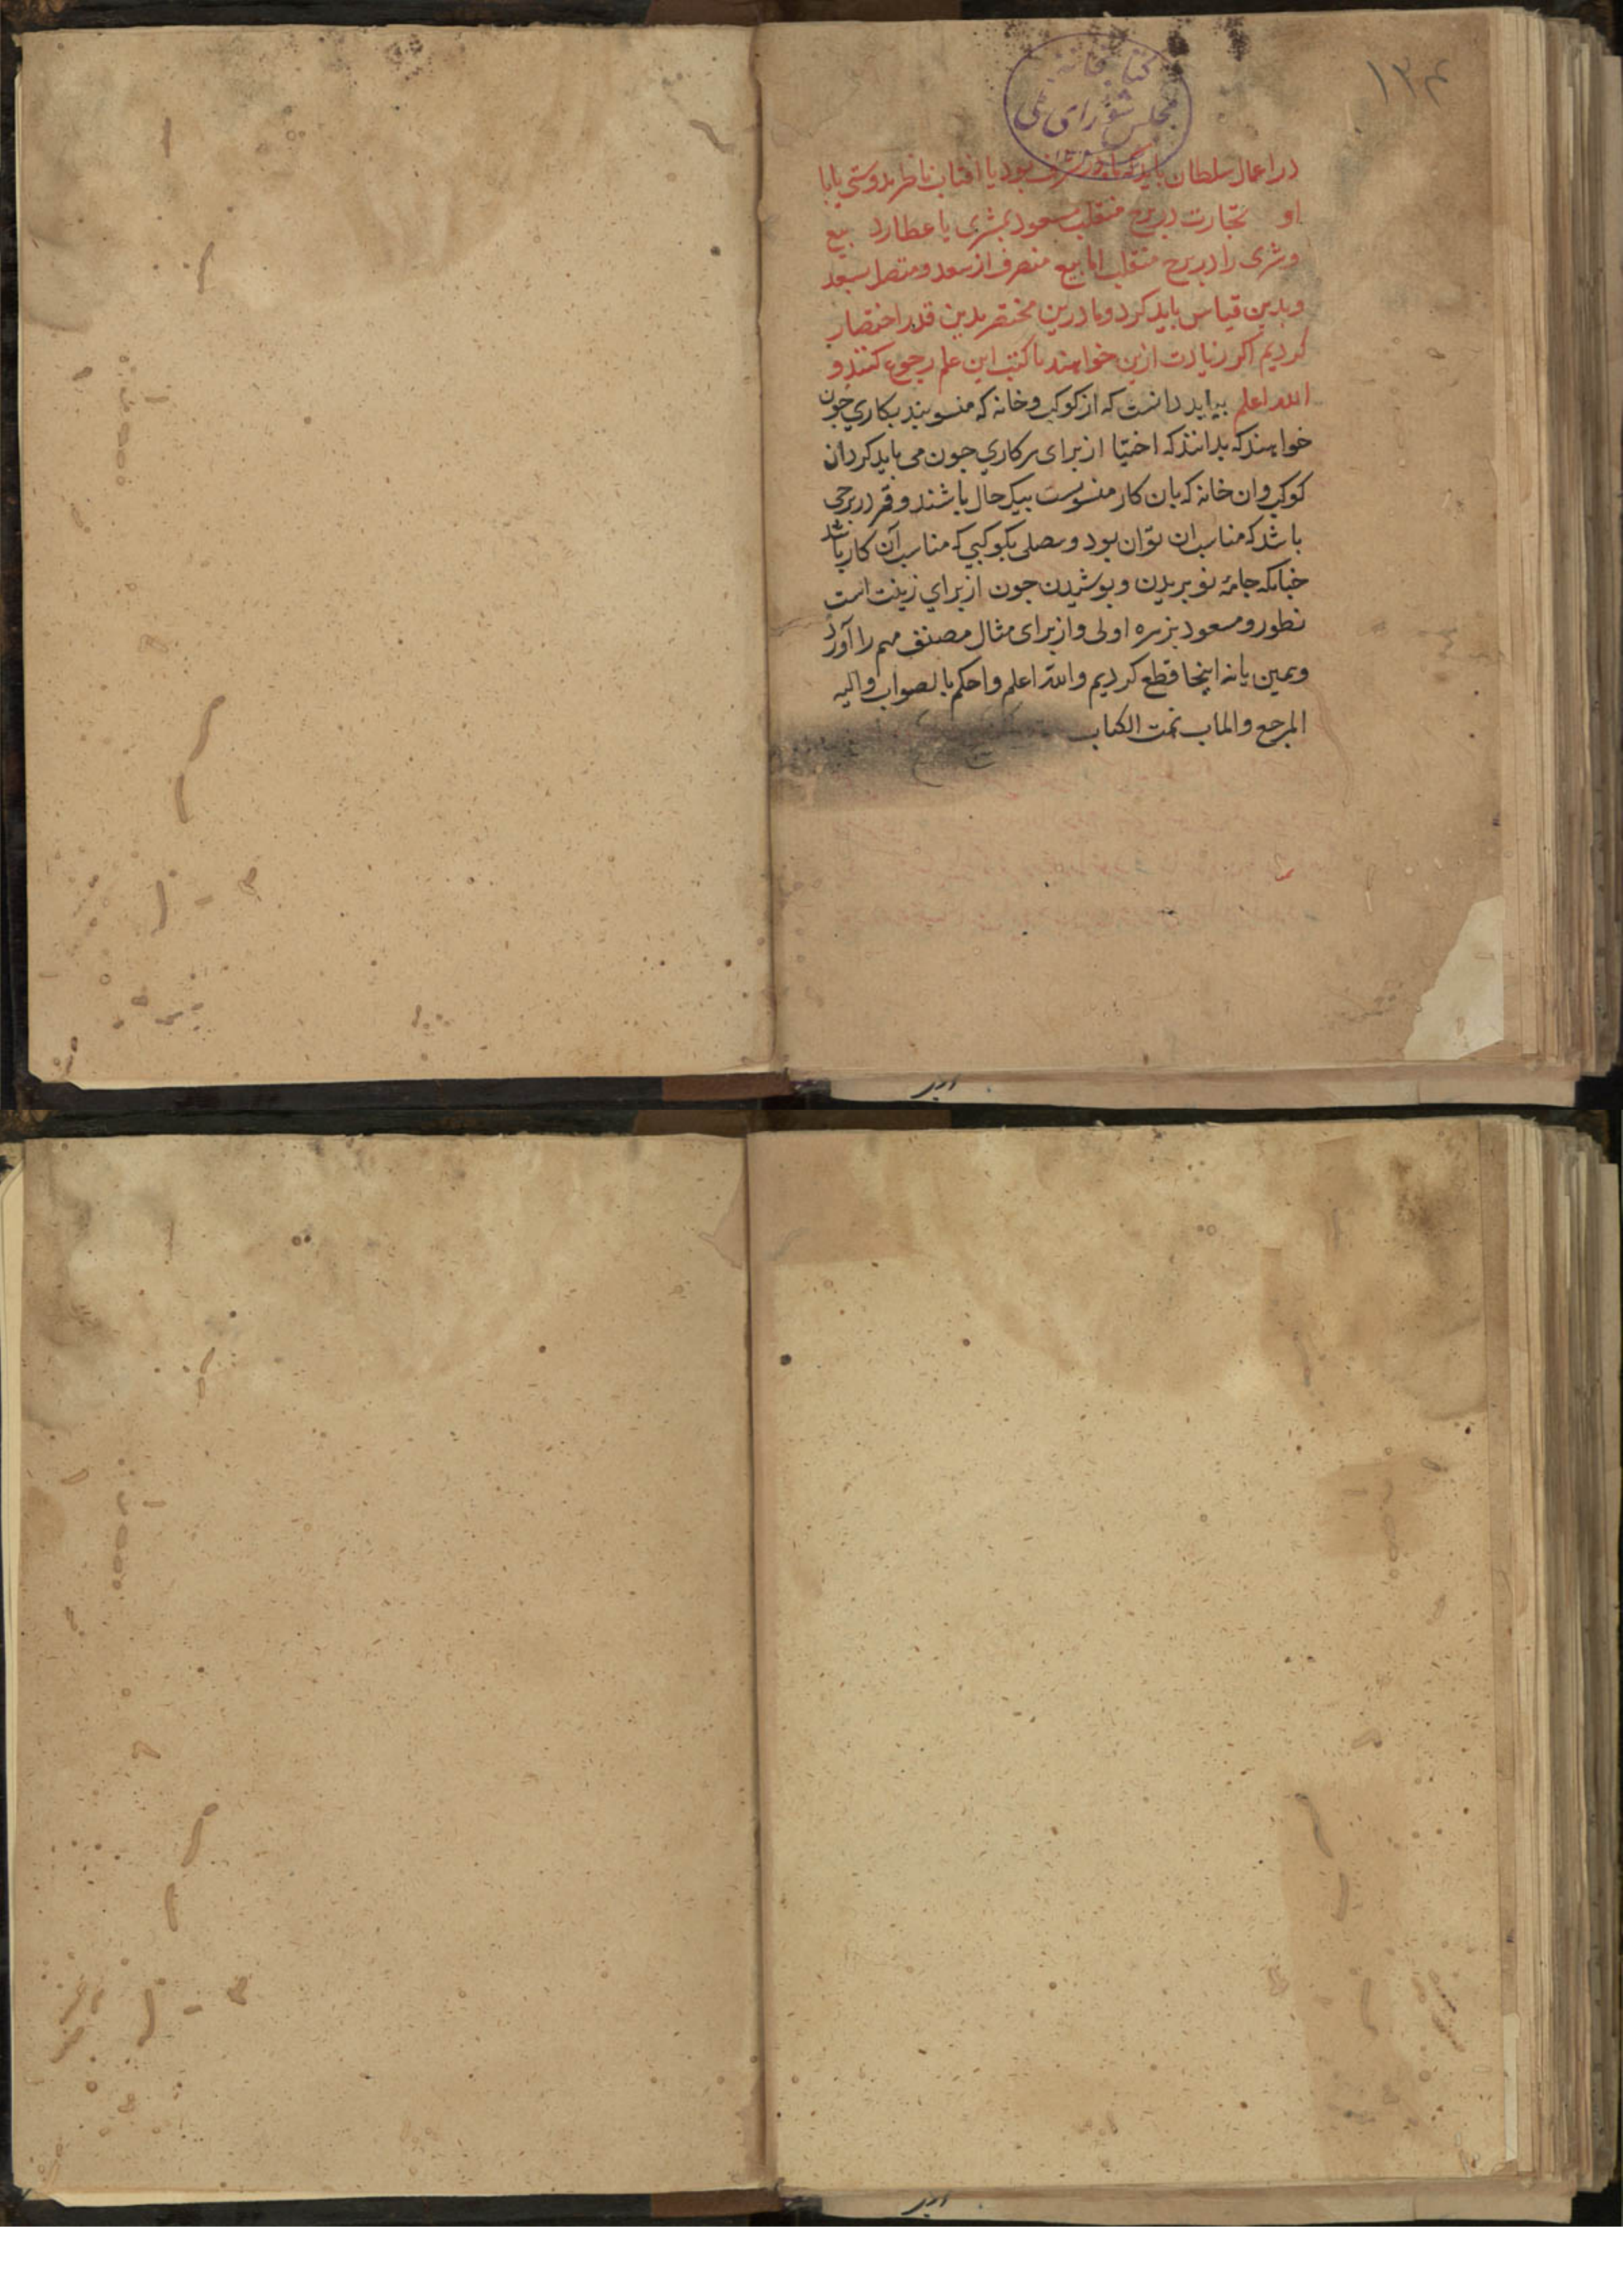 ۱۳۴
کتابخانه
مجلس شورای ملی
در اعمال سلطان باید که ماه در شرف بود یا افتاب ناظر بدوستی یا با
او تجارت در برج منقلب مسعود بمشتری یا عطارد بیع
وشری را در برج منقلب اما بیع منصرف از سعد ومتصل بسعد
وبدین قیاس باید کرد وما درین مختصر بدین قدر اختصار
کردیم اکر زیادت ازین خواهند با کتب این علم رجوع کنند و
الله اعلم بباید دانست که از کوکب وخانه که منسوبند بکاری جون
خواهند که بدانند که اختیار از برای هر کاری جون می باید کرد ان
کوکب وان خانه که بان کار منسوبست نیک حال باشند وقمر در برجی
باشد که مناسب ان بود ومتصل بکوکبی که مناسب آن کار باشد
جنانکه جامه نو بریدن وپوشیدن جون از برای زینت است
ومسعود بزهره اولی واز برای مثال مصنف مهم را آورد
وهمین اینجا قطع کردیم والله اعلم واحکم بالصواب والیه
المرجع والماب تمت الکتاب